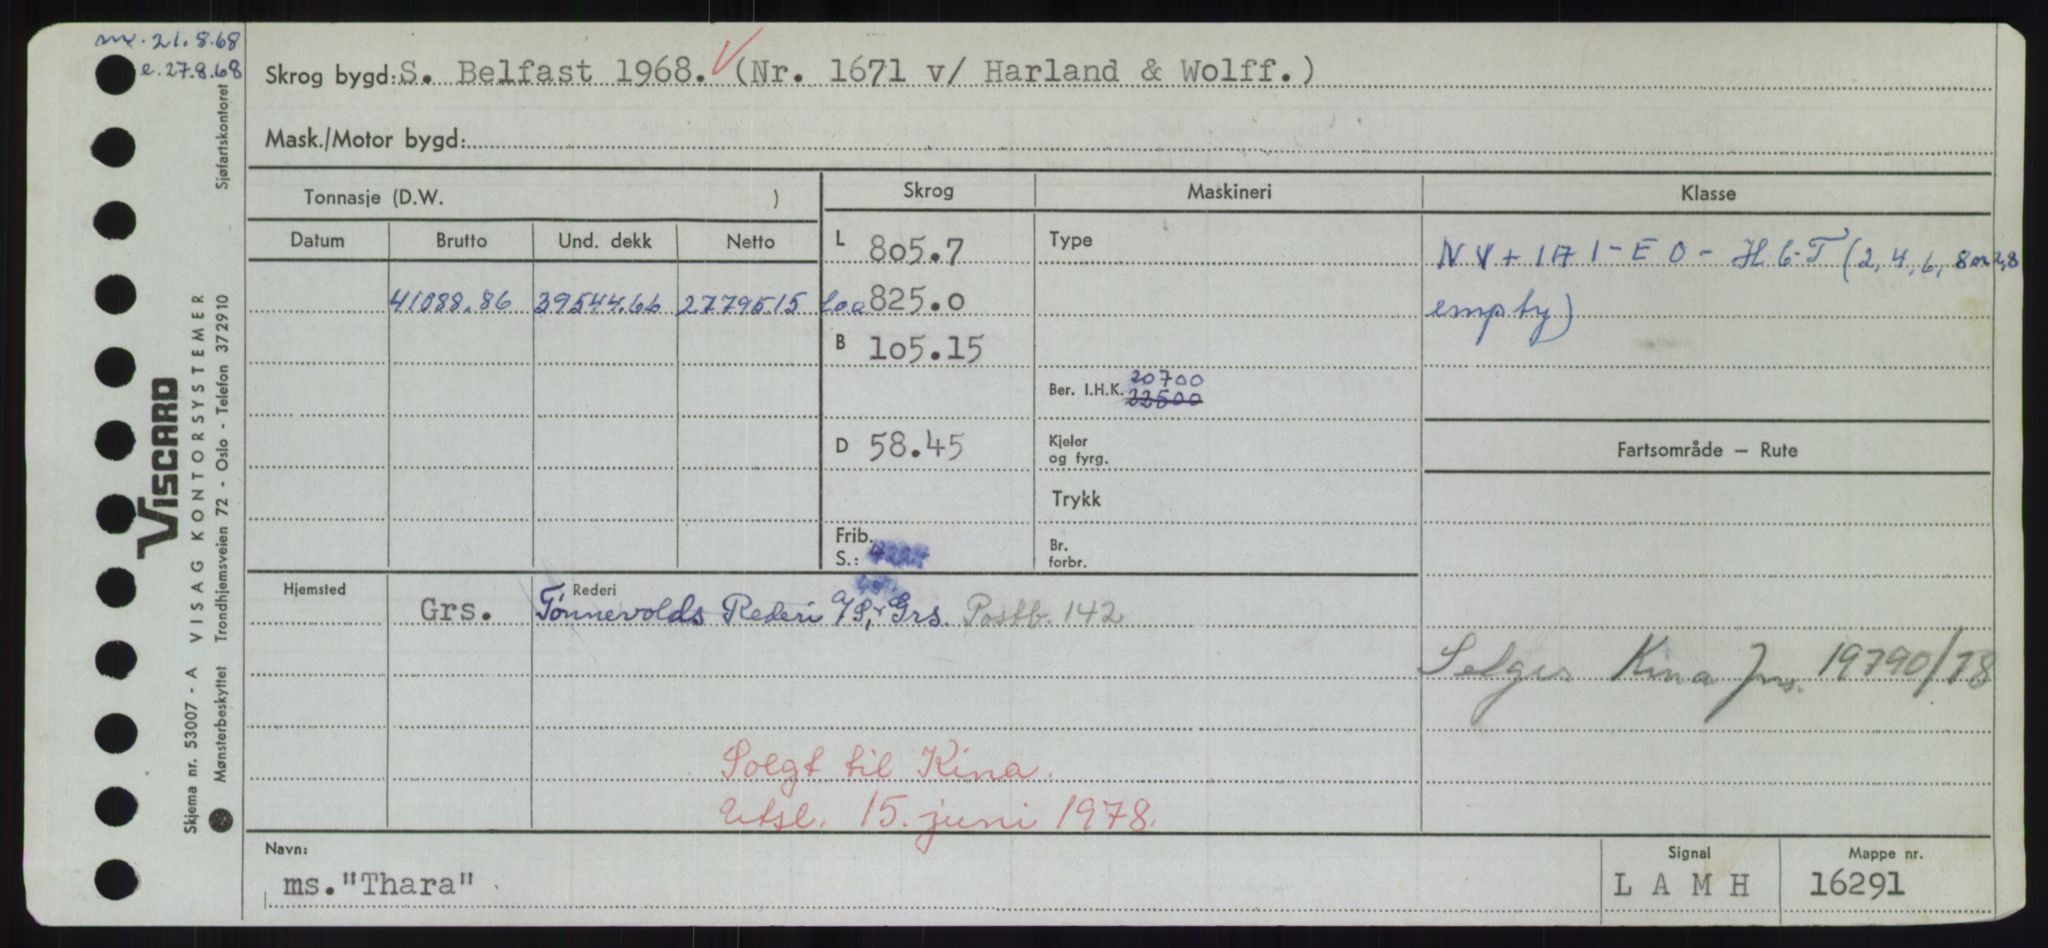 m. 21.8.68
e. 27.8.68
Skrog bygd: S. Belfast 1968. (Nr. 1671 v/ Harland & Wolff.)
Mask./Motor bygd:
Tonnasje (D.W. )
Skrog
Maskineri
Klasse
Datum Brutto Und. dekk Netto
L 805.7
Type
NV + 1A1 - EO - H.b.T (2, 4, 6, 8 or 2,8
41088.86 39544.66 27795.15
Loa 825.0
empty)
B 105.15
Ber. I.H.K. 20700
22500
D 58.45
Kjeler
og fyrg.
Fartsområde — Rute
Trykk
Frib.
S.:
Br.
forbr.
Hjemsted
Rederi
Grs. Tønnevolds Rederi A/S, Grs. Postb. 142
Selges Kina 19790/78
Solgt til Kina.
Utsl. 15. juni 1978.
Navn:
ms. "Thara"
Signal
L A M H
Mappe nr.
16291
VISCARD
Skjema nr. 53007 - A VISAG KONTORSYSTEMER
Mønsterbeskyttet Trondhjemsveien 72 - Oslo - Telefon 372910 Sjøfartskontoret